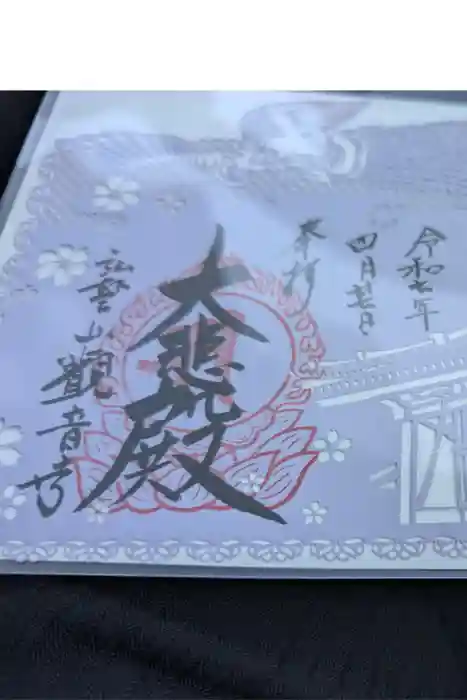 令和七年
四月廿日
奉拝
大悲殿
弘誓山
觀音寺